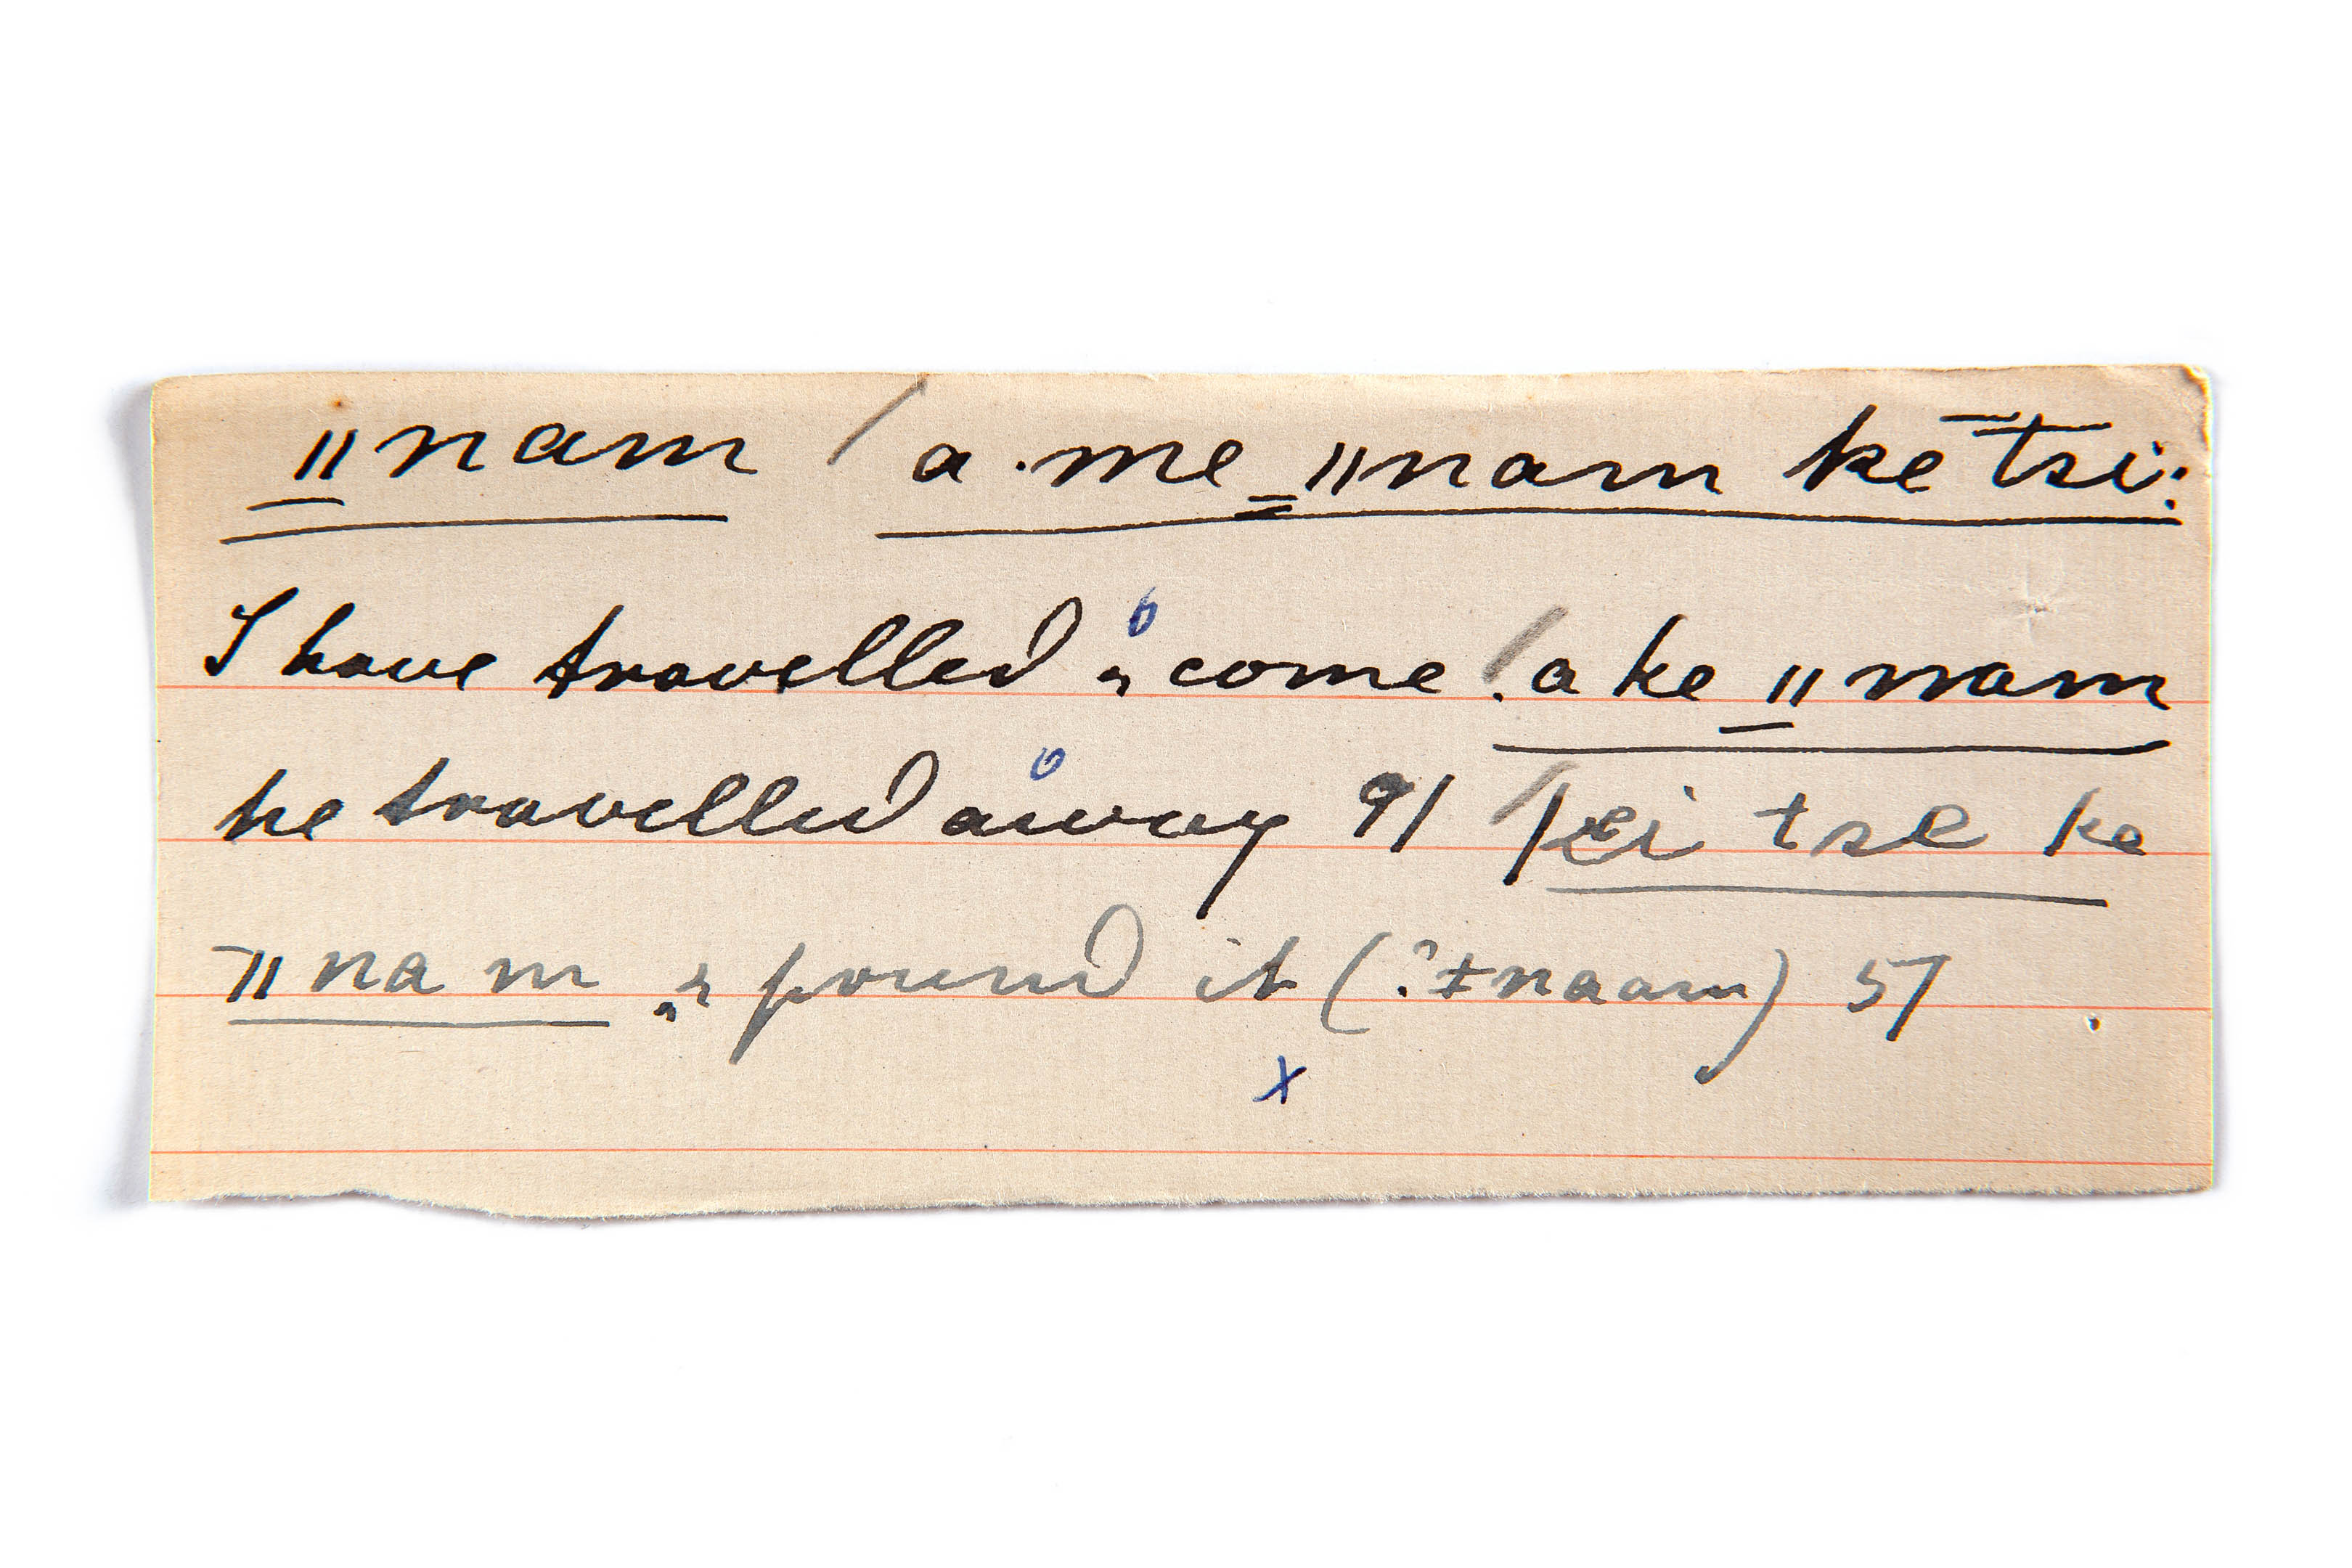 ǁnam / a.me ǁnam ke tsi:
I have travelled & come / a ke ǁnam
he travelled away 9/ / kei tse ke
ǁnam & pound it (? ǂnaam) 57
x